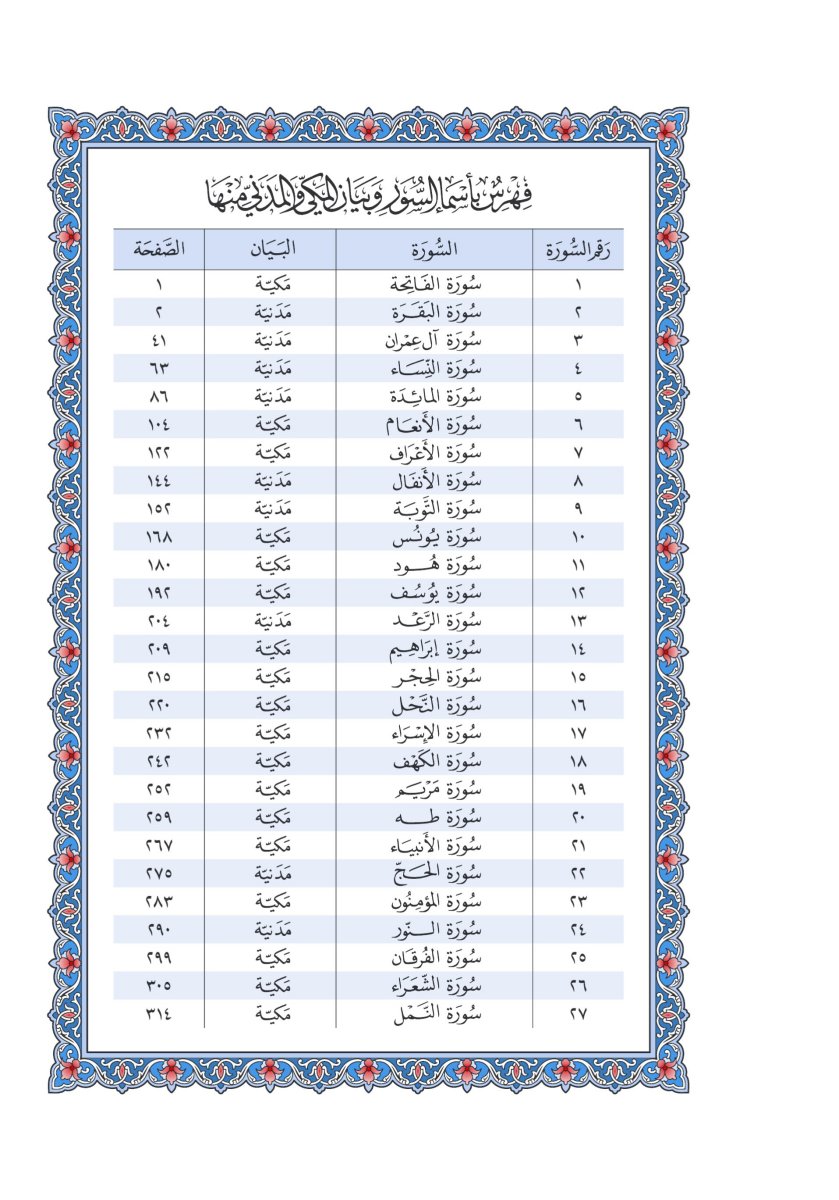 فِهْرِسٌ بِأَسْمَاءِ السُّوَرِ وَبَيَانِ المَكِّيِّ وَالمَدَنِيِّ مِنْهَا
رَقم السُّورَة السُّورَة البَيَان الصَّفحَة
١ سُورَة الفَاتِحَة مَكيّة ١
٢ سُورَة البَقَرَة مَدَنيّة ٢
٣ سُورَة آل عِمْرَان مَدَنيّة ٤١
٤ سُورَة النِّسَاء مَدَنيّة ٦٣
٥ سُورَة المائِدَة مَدَنيّة ٨٦
٦ سُورَة الأَنعَام مَكيّة ١٠٤
٧ سُورَة الأَعْرَاف مَكيّة ١٢٢
٨ سُورَة الأَنفَال مَدَنيّة ١٤٤
٩ سُورَة التَّوبَة مَدَنيّة ١٥٢
١٠ سُورَة يُونُس مَكيّة ١٦٨
١١ سُورَة هُود مَكيّة ١٨٠
١٢ سُورَة يُوسُف مَكيّة ١٩٢
١٣ سُورَة الرَّعْد مَدَنيّة ٢٠٤
١٤ سُورَة إبرَاهِيم مَكيّة ٢٠٩
١٥ سُورَة الحِجْر مَكيّة ٢١٥
١٦ سُورَة النَّحْل مَكيّة ٢٢٠
١٧ سُورَة الإِسْرَاء مَكيّة ٢٣٢
١٨ سُورَة الكَهْف مَكيّة ٢٤٢
١٩ سُورَة مَرْيَم مَكيّة ٢٥٢
٢٠ سُورَة طه مَكيّة ٢٥٩
٢١ سُورَة الأَنبيَاء مَكيّة ٢٦٧
٢٢ سُورَة الحَجّ مَدَنيّة ٢٧٥
٢٣ سُورَة المؤمِنُون مَكيّة ٢٨٣
٢٤ سُورَة النّور مَدَنيّة ٢٩٠
٢٥ سُورَة الفُرقَان مَكيّة ٢٩٩
٢٦ سُورَة الشّعَرَاء مَكيّة ٣٠٥
٢٧ سُورَة النَّمْل مَكيّة ٣١٤